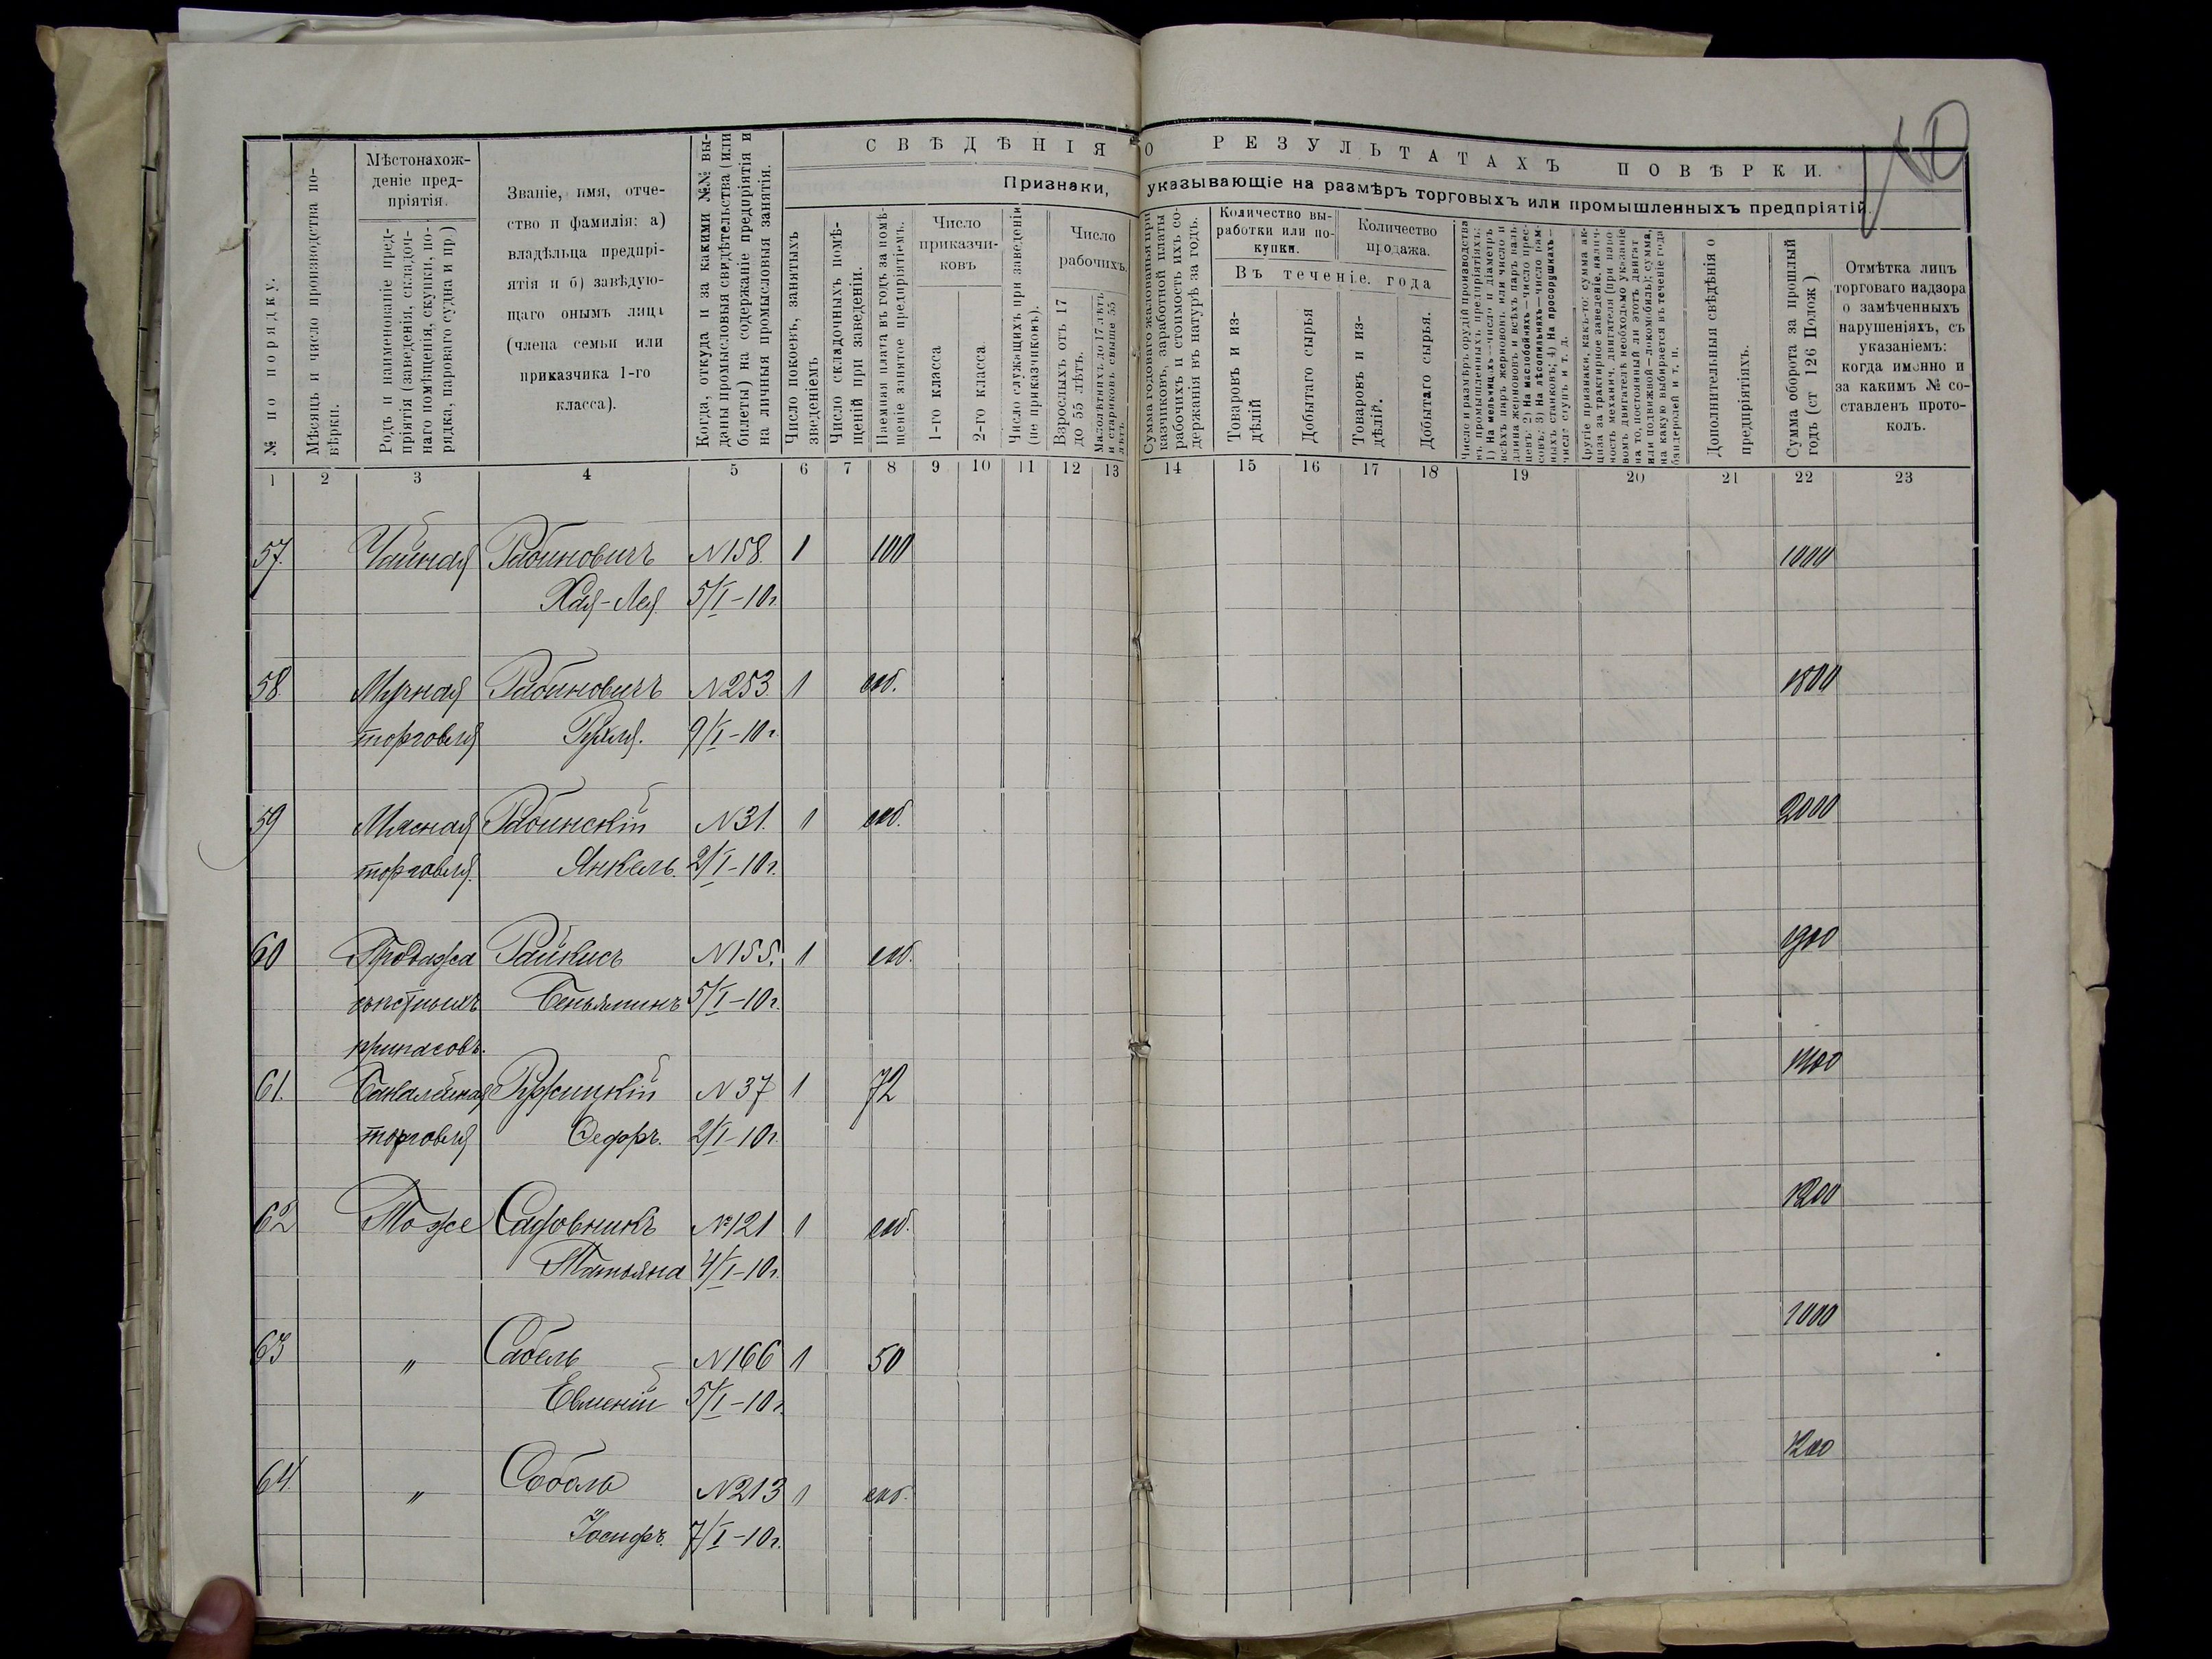 СВѢДѢНІЯ О РЕЗУЛЬТАТАХЪ ПОВѢРКИ.
Признаки, указывающіе на размѣръ торговыхъ или промышленныхъ предпріятій.
№ по порядку.
Мѣсяцъ и число производства по-
вѣрки.
Мѣстонахож-
деніе пред-
пріятія.
Родъ и наименованіе пред-
пріятія (заведенія, складоч-
наго помѣщенія, скупки, по-
рядка, пароваго судна и пр)
Званіе, имя, отче-
ство и фамилія: а)
владѣльца предпрі-
ятія и б) завѣдую-
щаго онымъ лица
(члена семьи или
приказчика 1-го
класса).
Когда, откуда и за какими №№ вы-
даны промысловыя свидѣтельства (или
билеты) на содержаніе предпріятія и
на личныя промысловыя занятія.
Число покоевъ, занятыхъ
зведеніемъ
Число складочныхъ помѣ-
щеній при заведеніи.
Наемная плата въ годъ за помѣ-
щеніе занятое предпріятіемъ.
Число
приказчи-
ковъ
1-го класса
2-го класса.
Число служащихъ при заведеніи
(не приказчиковъ).
Число
рабочихъ.
Взрослыхъ отъ 17
до 55 лѣтъ.
Малолѣтнихъ до 17 лѣтъ
и стариковъ свыше 55
лѣтъ.
Сумма годоваго жалованья при
казчиковъ, заработной платы
рабочихъ и стоимость ихъ со-
держанія въ натурѣ за годъ.
Количество вы-
работки или по-
купки.
Количество
продажа.
Въ теченіе года
Товаровъ и из-
дѣлій
Добытаго сырья
Товаровъ и из-
дѣлій.
Добытаго сырья.
Число и размѣръ орудій производства
въ промышленныхъ предпріятіяхъ:
1) На мельницахъ—число и діаметръ
всѣхъ паръ жернововъ или число и
длина жернововъ и всѣхъ паръ валь-
цевъ; 2) На маслобойняхъ—число прес-
совъ; 3) На лѣсопильняхъ—число рам-
ныхъ станковъ; 4) На просорушкахъ—
число ступъ и т. д.
Другіе признаки, какъ-то: сумма ак-
циза за трактирное заведеніе, налич-
ность механич. двигателя (при паро
вомъ двигателѣ необходимо указаніе
на то, постоянный ли этотъ двигат
или подвижной—локомобиль); сумма,
на какую выбирается въ теченіе года
бандеролей и т. п.
Дополнительныя свѣдѣнія о
предпріятіяхъ.
Сумма оборота за прошлый
годъ (ст 126 Полож)
Отмѣтка лицъ
торговаго надзора
о замѣченныхъ
нарушеніяхъ, съ
указаніемъ:
когда именно и
за какимъ № со-
ставленъ прото-
колъ.
1 2 3 4 5 6 7 8 9 10 11 12 13 14 15 16 17 18 19 20 21 22 23
57. Чайная Рабиновичъ №158. 1 100 1000
Хая-Лея. 5/I-10г.
58. Мучная Рабиновичъ №253 1 соб. 1800
торговля Рухля. 9/I-10г.
59 Мясная Рабинскій №31. 1 соб. 2000
торговля. Янкель. 2/I-10г.
60 Продажа Райкисъ №155. 1 соб. 1900
съѣстныхъ Беньяминъ 5/I-10г.
припасовъ.
61. Бакалейная Ружицкій №37 1 72
торговля Федоръ. 2/I-10г.
62 Тоже Садовникъ №121 1 соб. 1200
Татьяна 4/I-10г.
63 " Сабель №166 1 50 1000
Евменій 5/I-10г.
64. " Соболь №213 1 соб. 1200
Іосифъ. 7/I-10г.